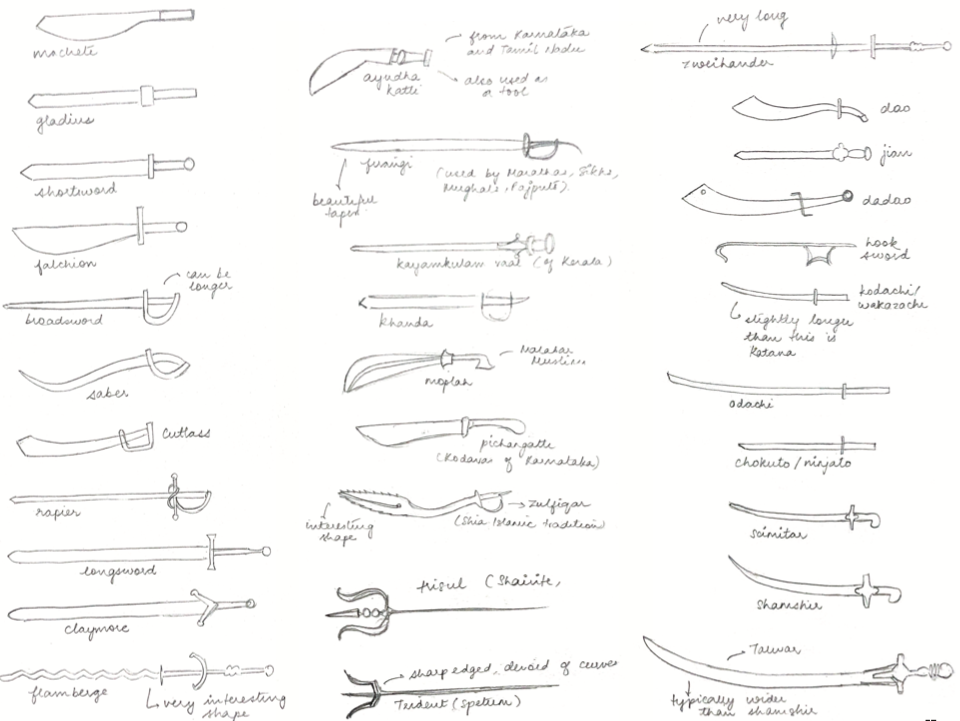 machete
gladius
shortsword
falchion
can be
longer
broadsword
saber
cutlass
rapier
longsword
claymore
flamberge
very interesting
shape
from Karnataka
and Tamil
ayudha
katti
also used as
a tool
firangi
(used by Marathas, Sikhs,
Mughals, Rajputs).
beautiful
taper
kayamkulam vaal (of Kerala)
khanda
Malabar
Muslims
moplah
pichangatti
(Kodavas of Karnataka)
zulfiqar
(Shia Islamic tradition)
interesting
shape
trisul (Shaivite,
sharp edged, devoid of curves
Trident (spetum)
very long
zweihander
dao
jian
dadao
hook
sword
kodachi/
wakazachi
slightly longer
than this is
Katana
odachi
chokuto/ninjato
scimitar
shamshir
Talwar
typically wider
than shamshir